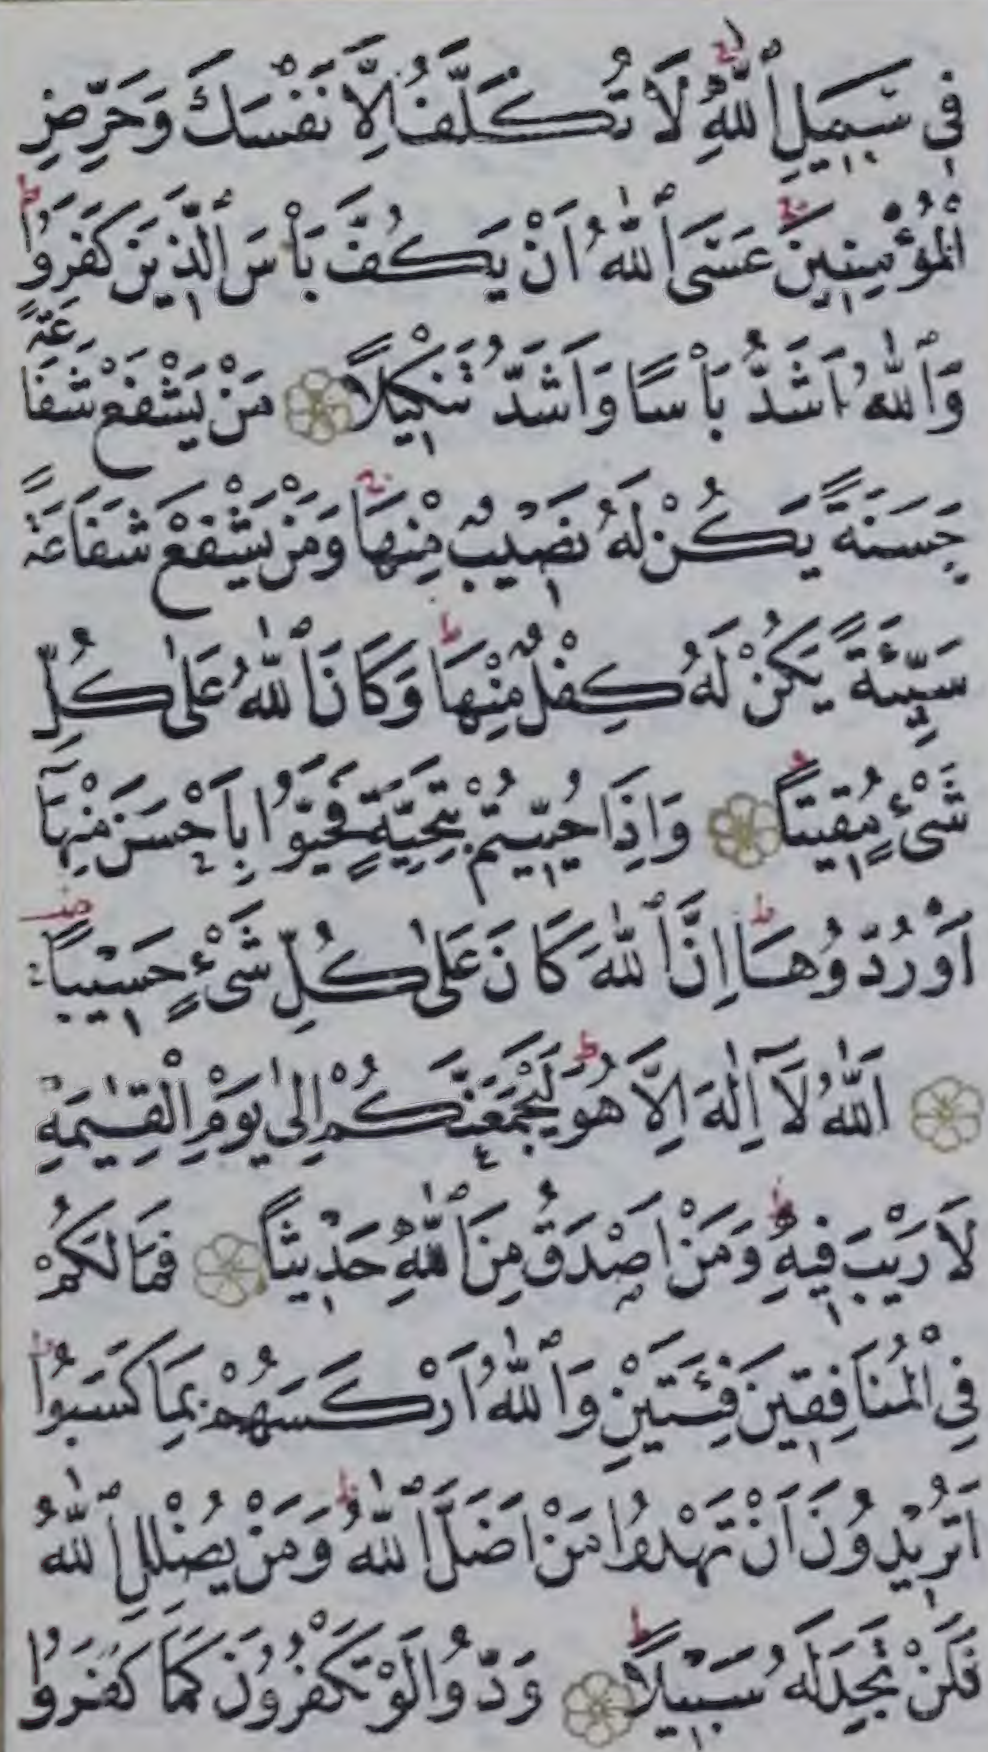 فِى سَبِيلِ ٱللّٰهِ لَا تُكَلَّفُ اِلَّا نَفْسَكَ وَحَرِّضِ
الْمُؤْمِنِينَ عَسَى ٱللّٰهُ اَنْ يَكُفَّ بَأْسَ ٱلَّذِينَ كَفَرُوا ط
وَٱللّٰهُ اَشَدُّ بَأْسًا وَاَشَدُّ تَنْكِيلًا مَنْ يَشْفَعْ شَفَاعَةً
حَسَنَةً يَكُنْ لَهُ نَصِيبٌ مِنْهَا وَمَنْ يَشْفَعْ شَفَاعَةً
سَيِّئَةً يَكُنْ لَهُ كِفْلٌ مِنْهَا ط وَكَانَ ٱللّٰهُ عَلٰى كُلِّ
شَىْءٍ مُقِيتًا وَاِذَا حُيِّيتُمْ بِتَحِيَّةٍ فَحَيُّوا بِاَحْسَنَ مِنْهَآ
اَوْ رُدُّوهَا ط اِنَّ ٱللّٰهَ كَانَ عَلٰى كُلِّ شَىْءٍ حَسِيبًا
اَللّٰهُ لَآ اِلٰهَ اِلَّا هُوَ ط لَيَجْمَعَنَّكُمْ اِلٰى يَوْمِ الْقِيٰمَةِ
لَا رَيْبَ فِيهِ ط وَمَنْ اَصْدَقُ مِنَ ٱللّٰهِ حَدِيثًا فَمَا لَكُمْ
فِى الْمُنَافِقِينَ فِئَتَيْنِ وَٱللّٰهُ اَرْكَسَهُمْ بِمَا كَسَبُوا ط
اَتُرِيدُونَ اَنْ تَهْدُوا مَنْ اَضَلَّ ٱللّٰهُ ط وَمَنْ يُضْلِلِ ٱللّٰهُ
فَلَنْ تَجِدَ لَهُ سَبِيلًا ط وَدُّوا لَوْ تَكْفُرُونَ كَمَا كَفَرُوا